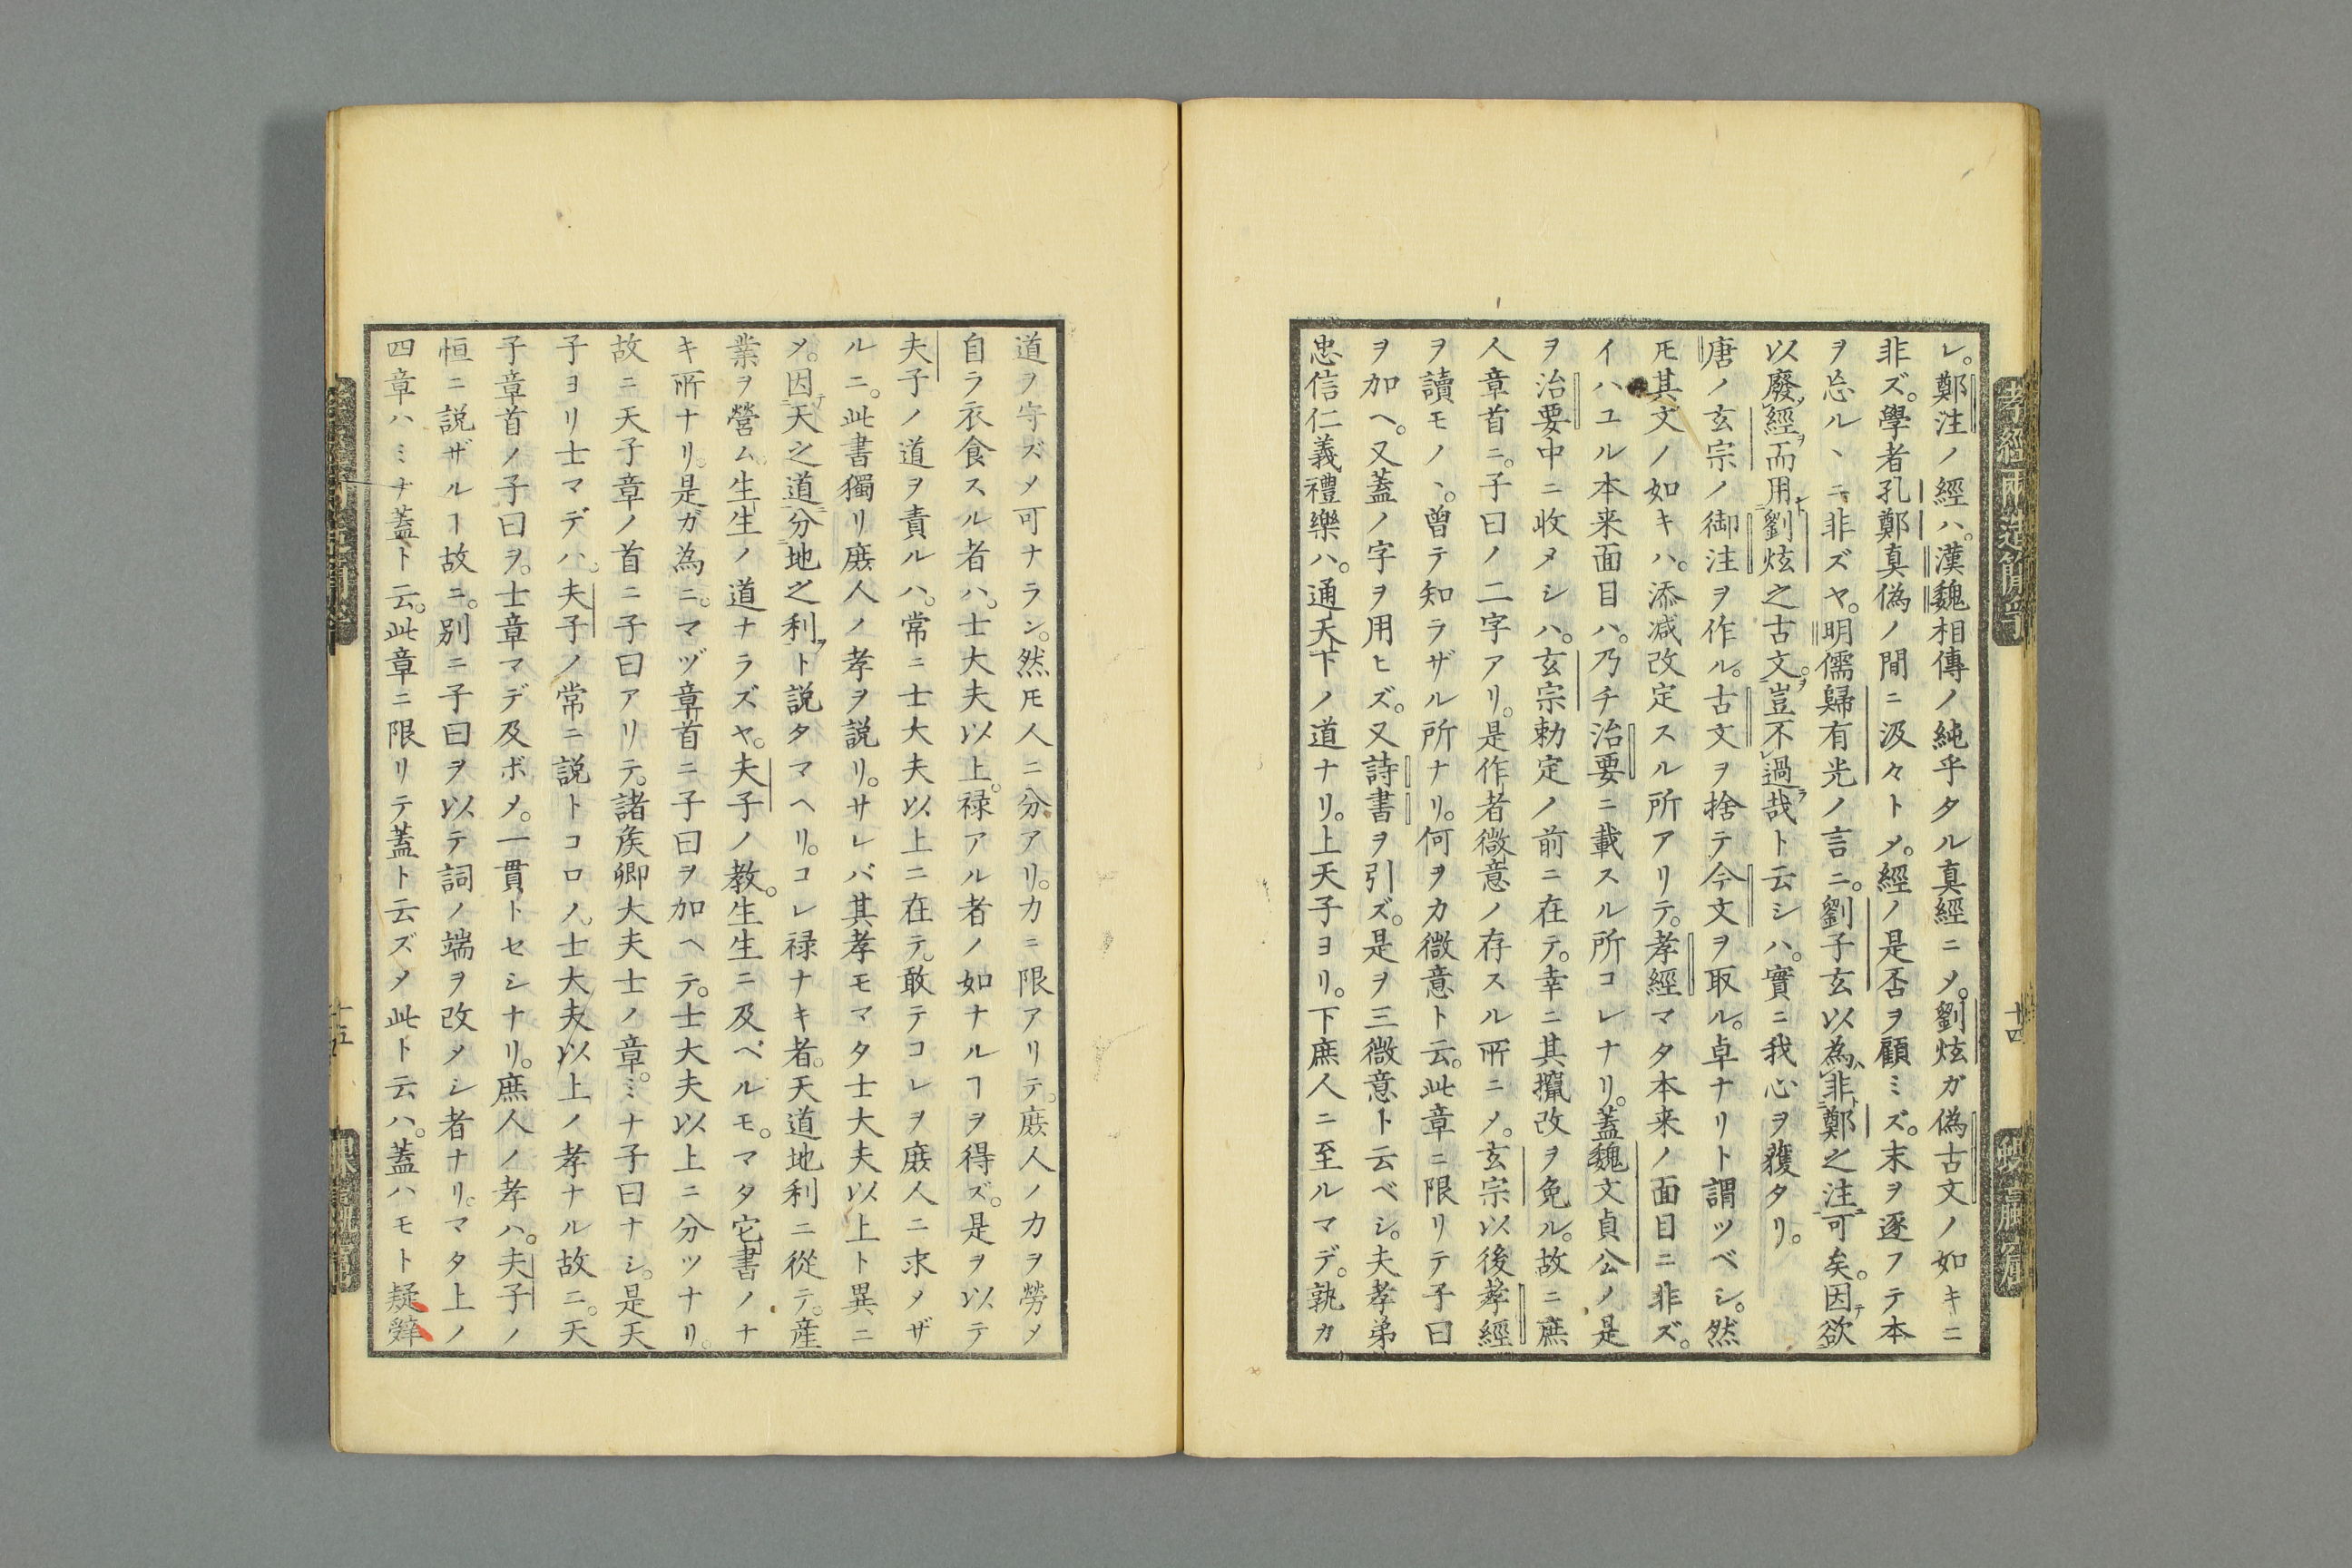 レ。鄭注ノ經ハ。漢魏相傳ノ純乎タル真經ニメ。劉炫ガ偽古文ノ如キニ
非ズ。學者孔鄭真偽ノ間ニ汲々トメ。經ノ是否ヲ顧ミズ。末ヲ逐フテ本
ヲ忘ル丶ニ非ズヤ。明儒歸有光ノ言ニ。劉子玄以為非鄭之注可矣。因テ欲
以廢經ヲ而用劉炫之古文ヲ。豈不過哉ト云シハ。實ニ我心ヲ獲タリ。
唐ノ玄宗ノ御注ヲ作ル。古文ヲ捨テ今文ヲ取ル。卓ナリト謂ツベシ。然
𪜈其文ノ如キハ。添減改定スル所アリテ。孝經マタ本来ノ面目ニ非ズ。
イハユル本来面目ハ。乃チ治要ニ載スル所コレナリ。蓋魏文貞公ノ是
ヲ治要中ニ收メシハ。玄宗勅定ノ前ニ在テ。幸ニ其攛改ヲ免ル。故ニ庶
人章首ニ。子曰ノ二字アリ。是作者微意ノ存スル所ニメ。玄宗以後孝經
ヲ讀モノ丶。曾テ知ラザル所ナリ。何ヲカ微意ト云。此章ニ限リテ子曰
ヲ加ヘ。又蓋ノ字ヲ用ヒズ。又詩書ヲ引ズ。是ヲ三微意ト云ベシ。夫孝弟
忠信仁義禮樂ハ。通天下ノ道ナリ。上天子ヨリ。下庶人ニ至ルマデ。孰カ
道ヲ守ズメ可ナラン。然𪜈人ニ分アリ。力ニ限アリテ。庶人ノ力ヲ勞メ
自ラ衣食スル者ハ。士大夫以上。禄アル者ノ如ナルヿヲ得ズ。是ヲ以テ
夫子ノ道ヲ責ルハ。常ニ士大夫以上ニ在テ。敢テコレヲ庶人ニ求メザ
ルニ。此書獨リ庶人ノ孝ヲ説リ。サレバ其孝モマタ士大夫以上ト異ニ
メ。因天之道分地之利ト説タマヘリ。コレ禄ナキ者。天道地利ニ從テ。産
業ヲ營ム。生生ノ道ナラズヤ。夫子ノ教。生生ニ及ベルモ。マタ它書ノナ
キ所ナリ。是ガ為ニ。マヅ章首ニ子曰ヲ加ヘテ。士大夫以上ニ分ツナリ。
故ニ天子章ノ首ニ子曰アリテ。諸矦卿大夫士ノ章。ミナ子曰ナシ。是天
子ヨリ士マデハ。夫子ノ常ニ説トコロノ。士大夫以上ノ孝ナル故ニ。天
子章首ノ子曰ヲ。士章マデ及ボメ。一貫トセシナリ。庶人ノ孝ハ。夫子ノ
恒ニ説ザルヿ故ニ。別ニ子曰ヲ以テ詞ノ端ヲ改メシ者ナリ。マタ上ノ
四章ハミナ蓋ト云。此章ニ限リテ蓋ト云ズメ此ト云ハ。蓋ハモト疑辤
十四
十五